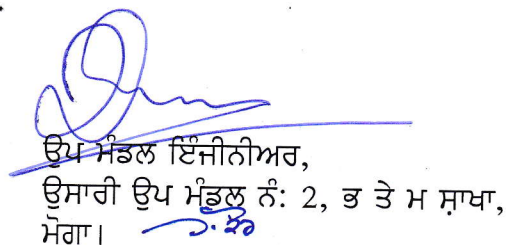 ਉਪ ਮੰਡਲ ਇੰਜੀਨੀਅਰ,
ਉਸਾਰੀ ਉਪ ਮੰਡਲ ਨੰ: 2, ਭ ਤੇ ਮ ਸ਼ਾਖਾ,
ਮੋਗਾ।